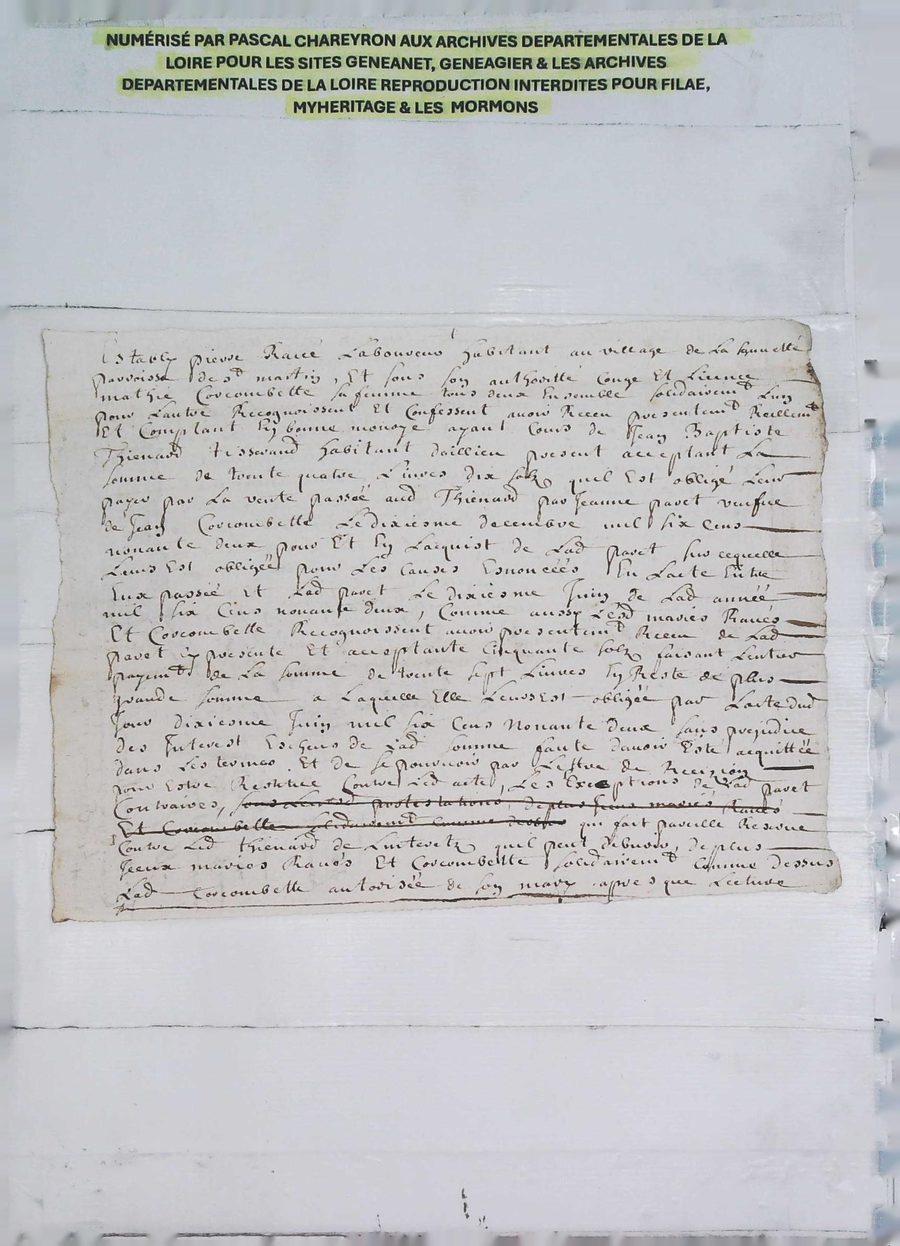 NUMÉRISÉ PAR PASCAL CHAREYRON AUX ARCHIVES DEPARTEMENTALES DE LA
LOIRE POUR LES SITES GENEANET, GENEAGIER & LES ARCHIVES
DEPARTEMENTALES DE LA LOIRE REPRODUCTION INTERDITES POUR FILAE,
MYHERITAGE & LES MORMONS
Establÿ pierre Racé Laboureur habitant au village de La
parroisse de st martin, Et sous son authoritté Congé Et Licence
mathie Corcombette sa femme tous deux Ensemble solidairemt Lun
pour Lautre Recognoissent Et Confessent avoir Receu presentemt Reellemt
Et Comptant En bonne monoye ayant Cours de Jean Baptiste
Thienard tisserand habitant daillieu present acceptant La
somme de trente quatre Livres dix solz quil Est obligé Leur
payer par La vente passée aud Thienard par Jeanne paret veufve
de Jean Corcombette Le dixiesme decembre mil six Cens
nonante deux pour Et En Lacquist de Lad paret sur cequelle
Leurs Est obligée pour Les Causes Enoncées En Lacte Entre
Eux passée Et Lad paret Le dixiesme Juin de Lad année
mil six Cens nonante deux, Comme aussy Lesd mariés Racés
Et Corcombette Recognoissent avoir presentemt Receu de Lad
paret Ej presente Et acceptante Cinquante solz faisant Lentier
payemt de La somme de trente sept Livres En Reste de plus
grande somme a Laquelle Elle Leurs Est obligée par Lacte dud
Jour dixiesme Juin mil six Cens Nonante deux sans prejudice
des Interest Escheus de Lad somme faute davoir Esté acquittée
dans Les termes Et de se pourvoir par Lettre de Recizion
pour Estre Restituée Contre Led acte, Les Exceptions de Lad paret
Contraires, protestations, de plus Iceux mariés Racés
Et Corcombette solidairemt Comme dessus qui fait pareille Reserve
Contre Led Thienard de Linteretz quil peut debvoir, de plus
Jceux mariés Racés Et Corcombette solidairemt Comme dessus
Lad Corcombette autorisée de son mary appres que Lecture